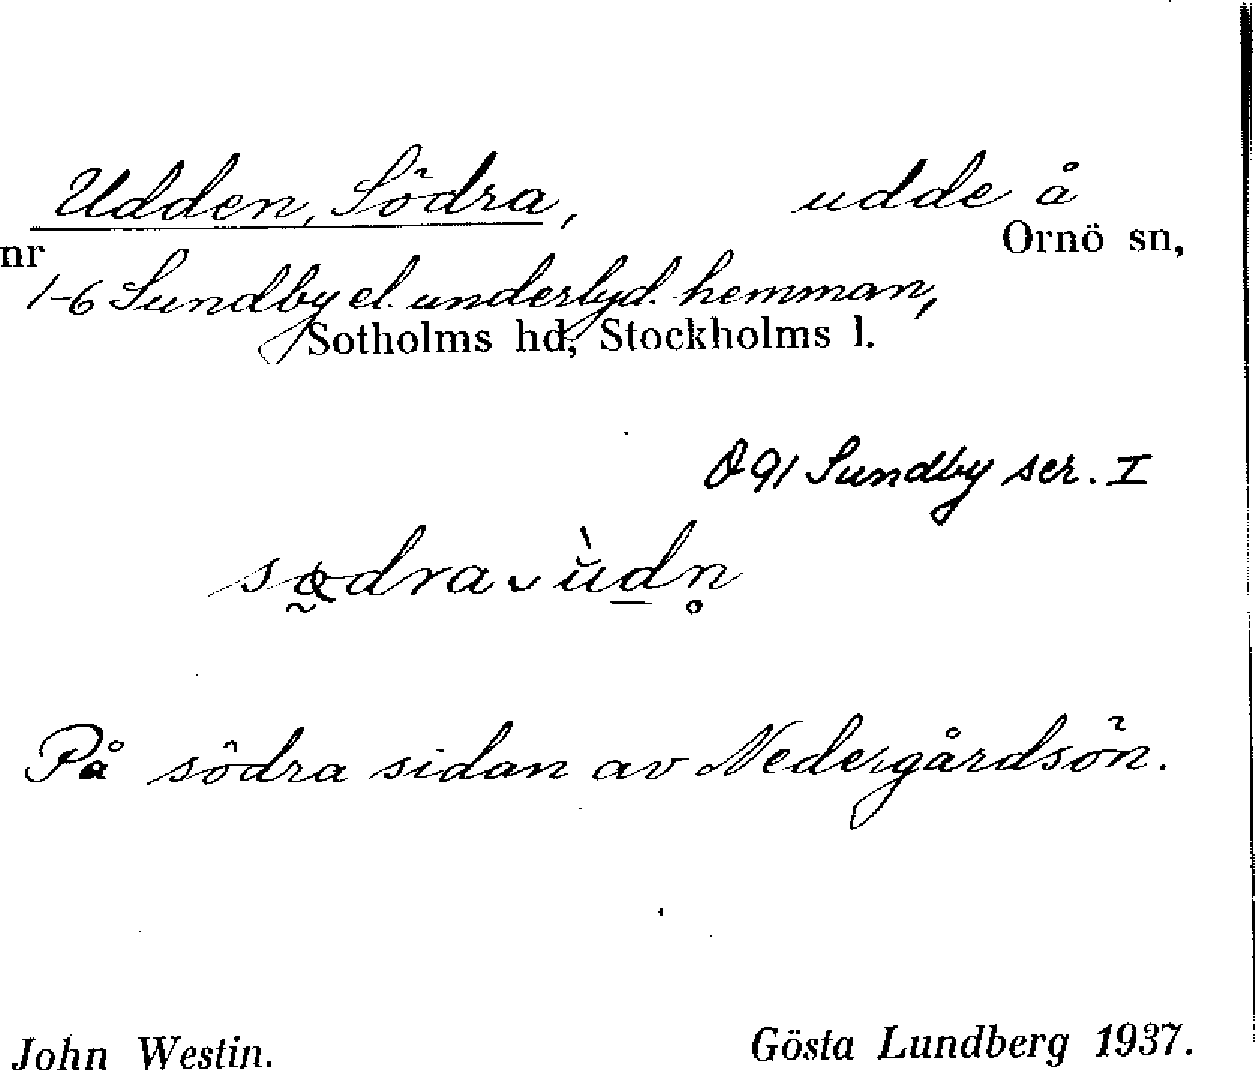 Udden, Södra, udde å
Ornö sn,
nr
1-6 Sundby el. underlyd. hemman,
Sotholms hd, Stockholms l.
91 Sundby ser. I
På södra sidan av Nedergårdsön.
John Westin. Gösta Lundberg 1937.